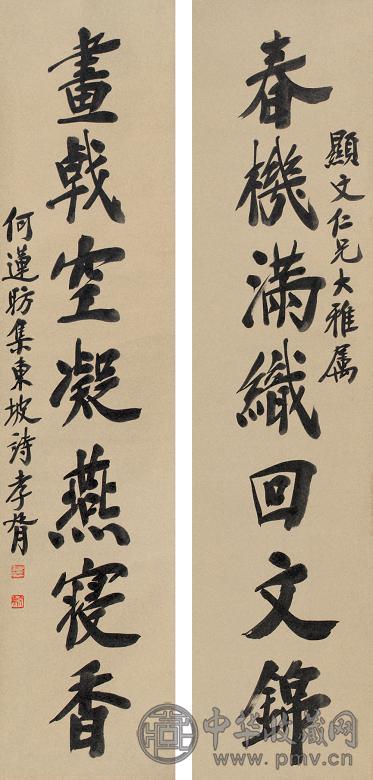 春機滿織回文錦
顯文仁兄大雅屬
畫戟空凝燕寢香
何蓮昉集東坡詩 孝胥
中华收藏网
www.pmv.cn